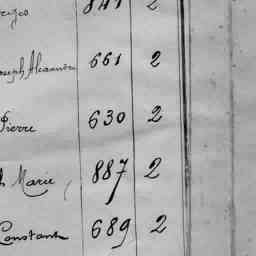 841 2
Joseph Alexandre 661 2
Pierre 630 2
Marie 887 2
Constant 689 2